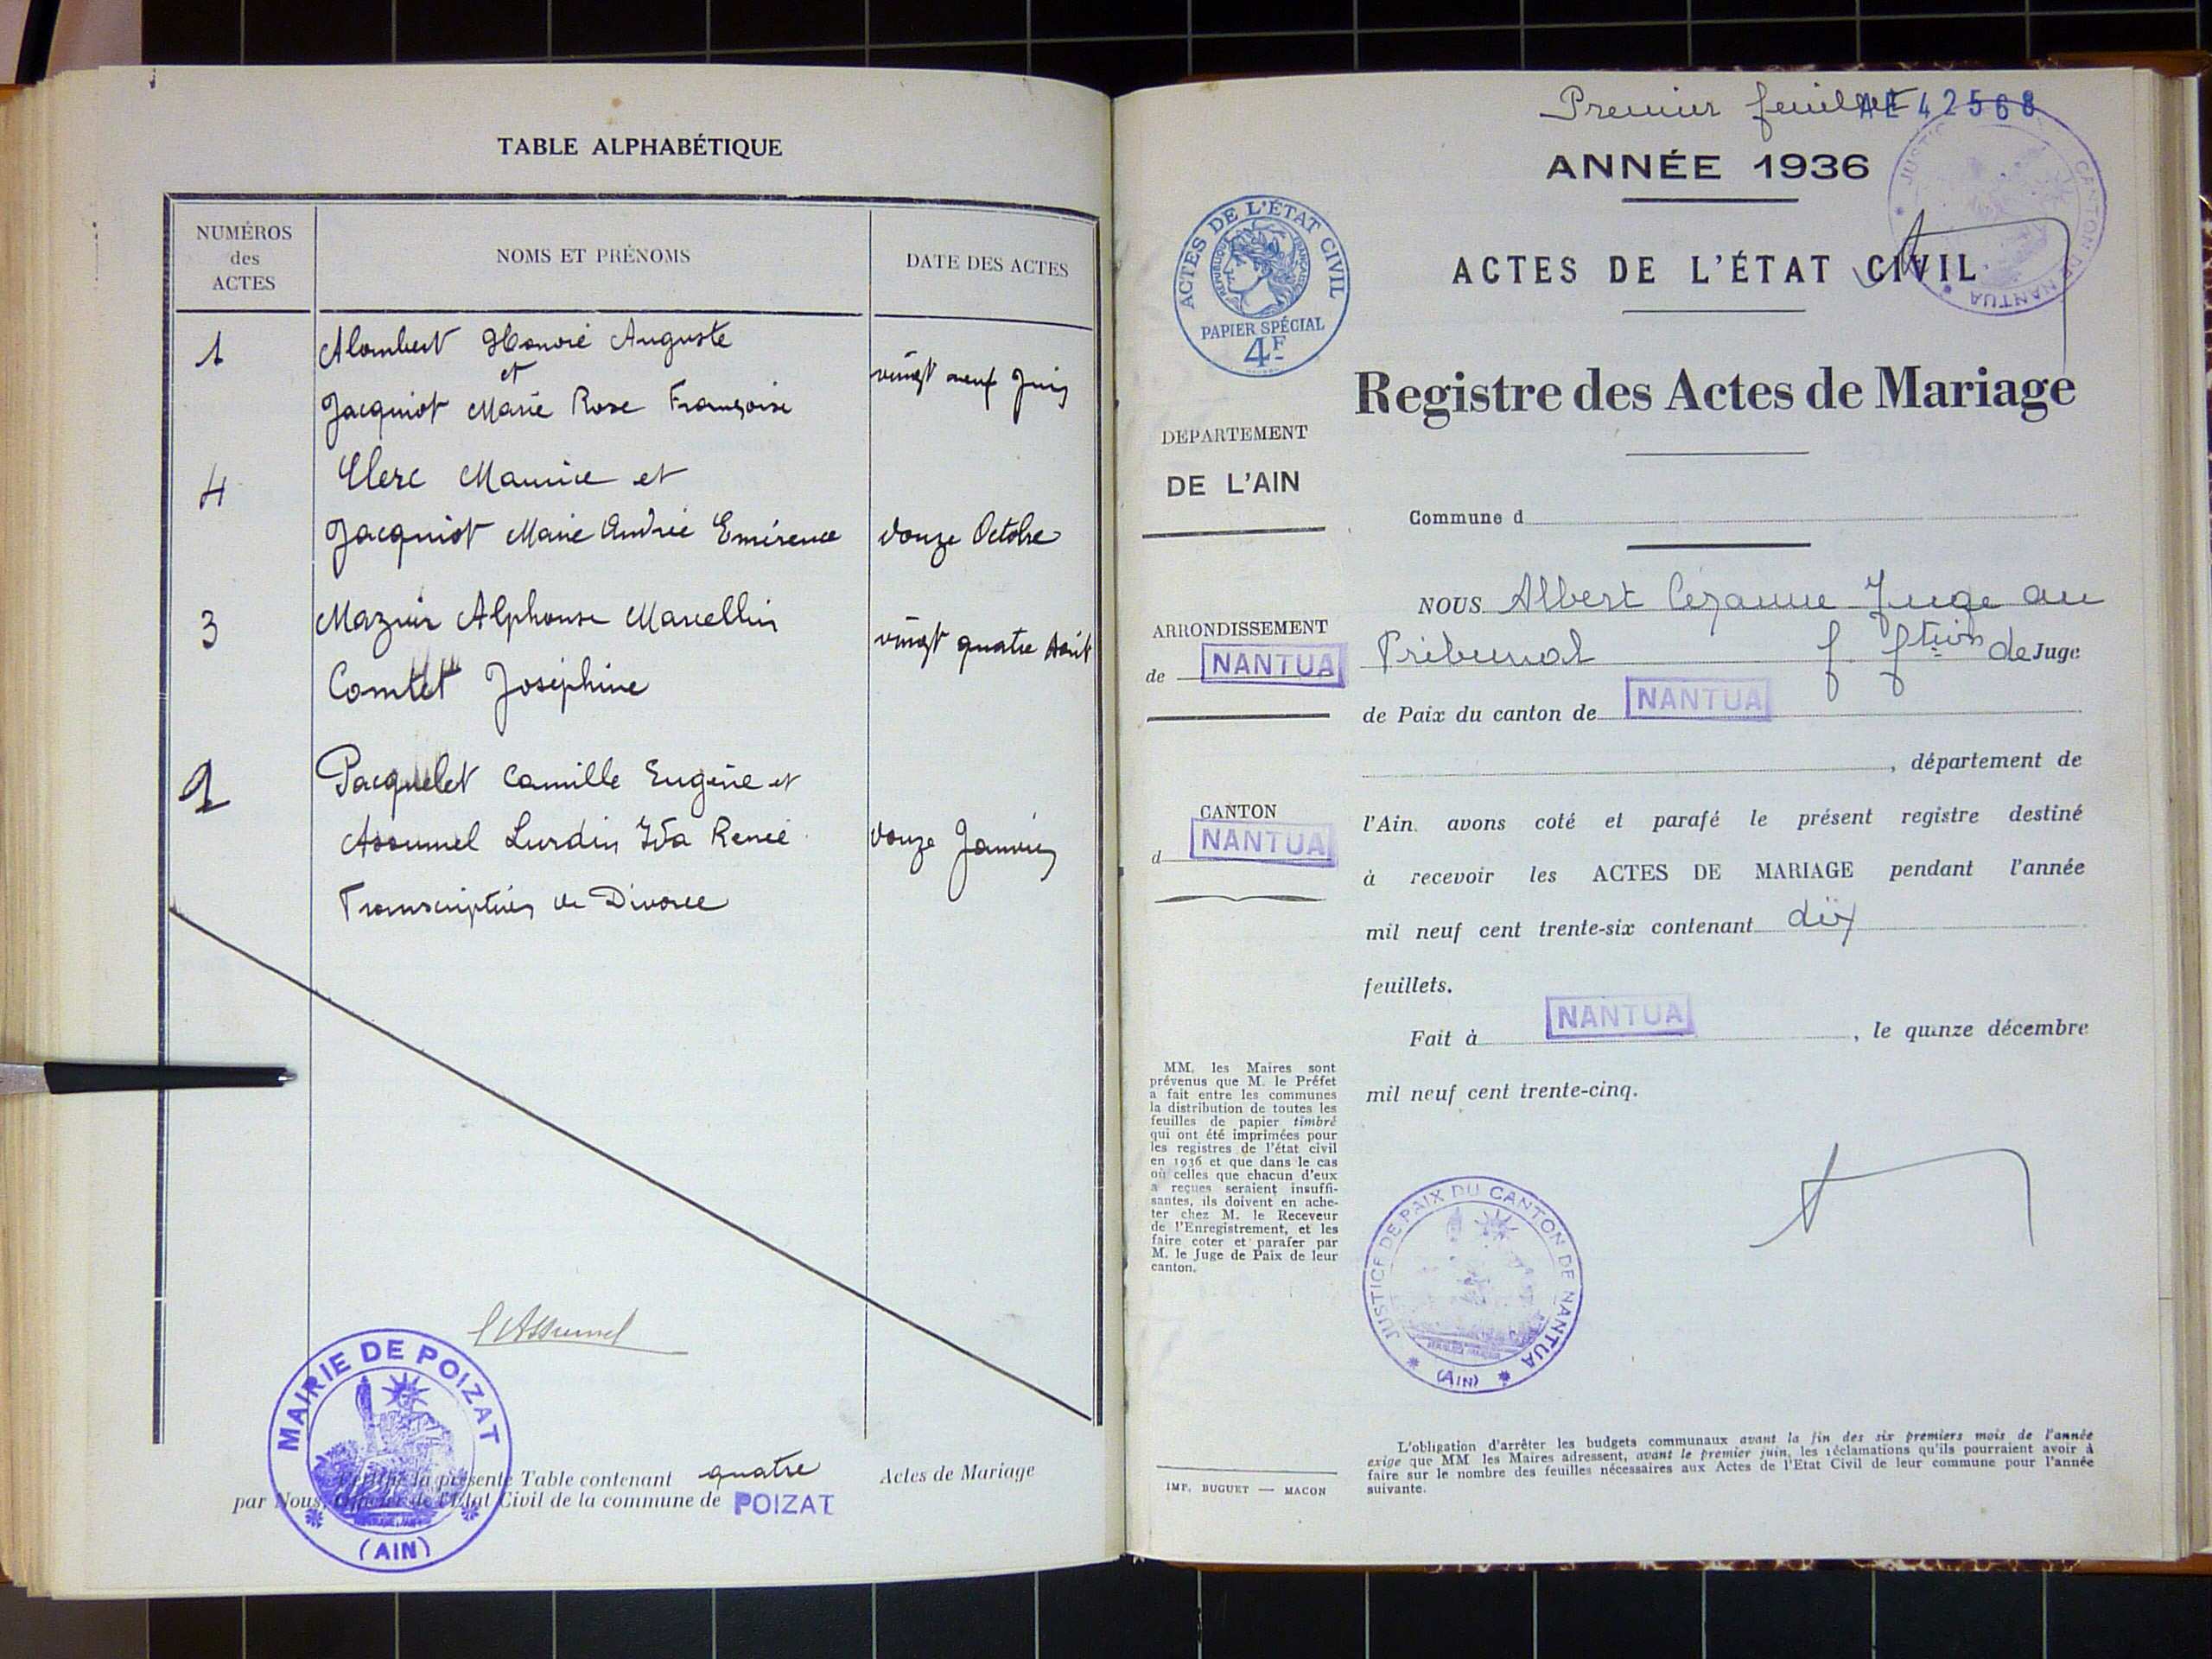 TABLE ALPHABÉTIQUE
NUMÉROS
des
ACTES
NOMS ET PRÉNOMS
DATE DES ACTES
1
Alombert Honoré Auguste
et
Jacquiot Marie Rose Françoise
vingt neuf Juin
4
Clerc Maurice et
Jacquiot Marie Andrée Emérence
douze Octobre
3
Mazuir Alphonse Marcellin
Comtet Joséphine
vingt quatre Août
2
Pacquelet Camille Eugène et
Assumel Lurdin Ida Renée
douze Janvier
Transcription de Divorce
MAIRIE DE POIZAT
(AIN)
Certifié la présente Table contenant quatre Actes de Mariage
par Nous, Officier de l'Etat Civil de la commune de POIZAT
Premier feuillet AE 42568
ANNÉE 1936
ACTES DE L'ÉTAT CIVIL
RÉPUBLIQUE FRANÇAISE
PAPIER SPÉCIAL
4F
JUSTICE CANTON DE NANTUA
ACTES DE L'ÉTAT CIVIL
Registre des Actes de Mariage
DEPARTEMENT
DE L'AIN
Commune d
ARRONDISSEMENT
de NANTUA
CANTON
d NANTUA
NOUS Albert Cézanne Juge au
Tribunal f. ftion de Juge
de Paix du canton de NANTUA
, département de
l'Ain, avons coté et parafé le présent registre destiné
à recevoir les ACTES DE MARIAGE pendant l'année
mil neuf cent trente-six contenant dix
feuillets.
Fait à NANTUA, le quinze décembre
mil neuf cent trente-cinq.
MM. les Maires sont
prévenus que M. le Préfet
a fait entre les communes
la distribution de toutes les
feuilles de papier timbré
qui ont été imprimées pour
les registres de l'état civil
en 1936 et que dans le cas
où celles que chacun d'eux
a reçues seraient insuffi-
santes, ils doivent en ache-
ter chez M. le Receveur
de l'Enregistrement, et les
faire coter et parafer par
M. le Juge de Paix de leur
canton.
JUSTICE DE PAIX DU CANTON DE NANTUA
(AIN)
IMP. BUGUET — MACON
L'obligation d'arrêter les budgets communaux avant la fin des six premiers mois de l'année
exige que MM les Maires adressent, avant le premier juin, les réclamations qu'ils pourraient avoir à
faire sur le nombre des feuilles nécessaires aux Actes de l'Etat Civil de leur commune pour l'année
suivante.